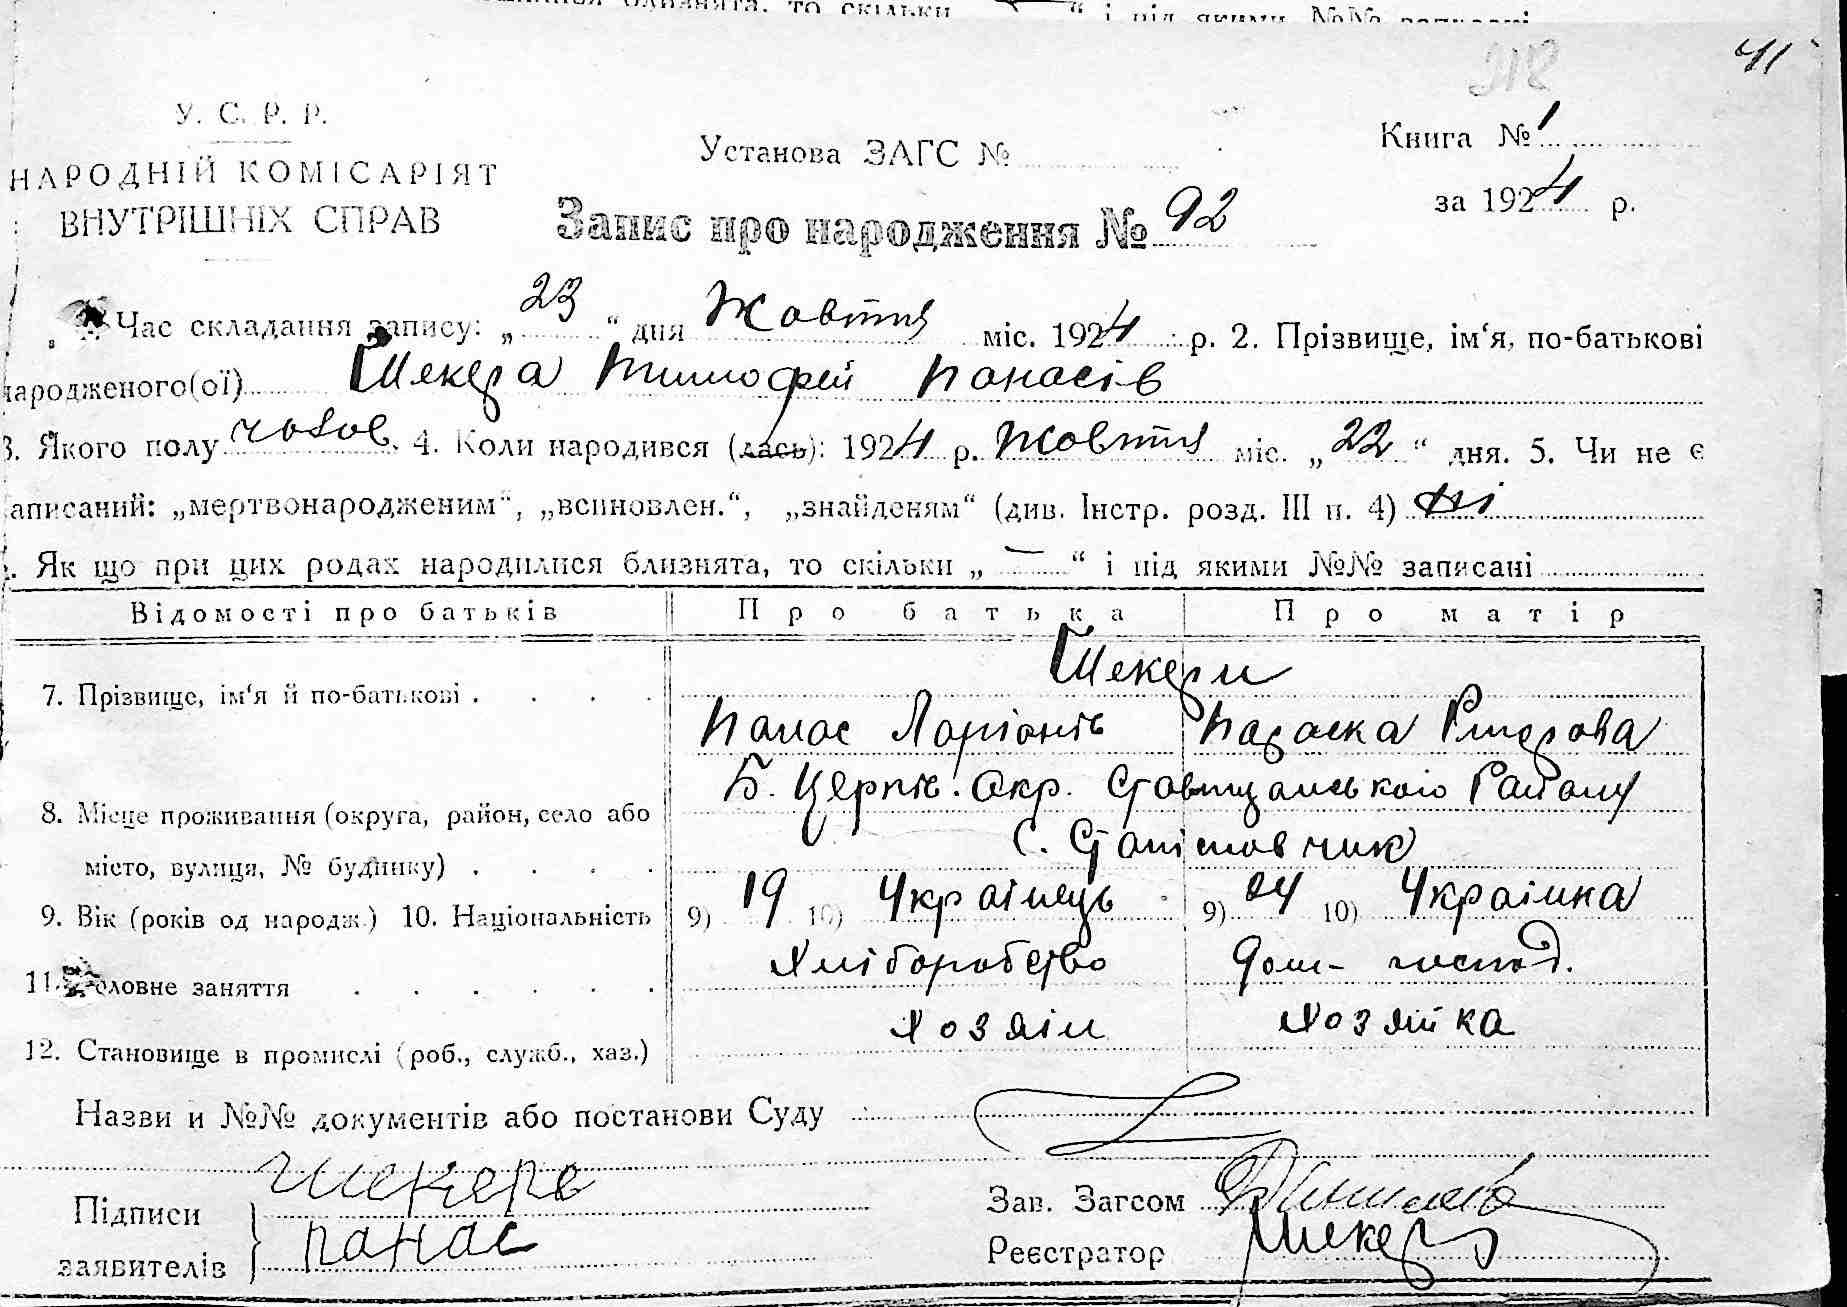 близнята, то скільки „ “ і під якими №№ записані
41
У. С. Р. Р.
НАРОДНІЙ КОМІСАРІЯТ
ВНУТРІШНІХ СПРАВ
Установа ЗАГС №
Книга № 1
за 1924 р.
Запис про народження № 92
Час складання запису: „23“ дня Жовтня міс. 1924 р. 2. Прізвище, ім‘я, по-батькові
народженого(ої) Шекера Тимофей Панасів
3. Якого полу чолов. 4. Коли народився (лась): 1924 р. Жовтня міс. „22“ дня. 5. Чи не є
записаний: „мертвонародженим“, „всиновлен.“, „знайденям“ (див. Інстр. розд. III п. 4) ні
. Як що при цих родах народилися близнята, то скільки „—“ і під якими №№ записані
Відомості про батьків Про батька Про матір
Шекери
7. Прізвище, ім‘я й по-батькові . . . . Панас Ларіонів Параска
8. Місце проживання (округа, район, село або Б. Церків. Окр. Ставищанського Району
місто, вулиця, № будинку) . . . . с. Станіловчик
9. Вік (років од народж.) 10. Національність 9) 19 10) Українець 9) 24 10) Українка
11. Головне заняття . . . . . . Хліборобство Дом- господ.
12. Становище в промислі (роб., служб., хаз.) Хозяін Хозяйка
Назви и №№ документів або постанови Суду
Підписи заявителів Шекера
Панас
Зав. Загсом
Реєстратор Шекера